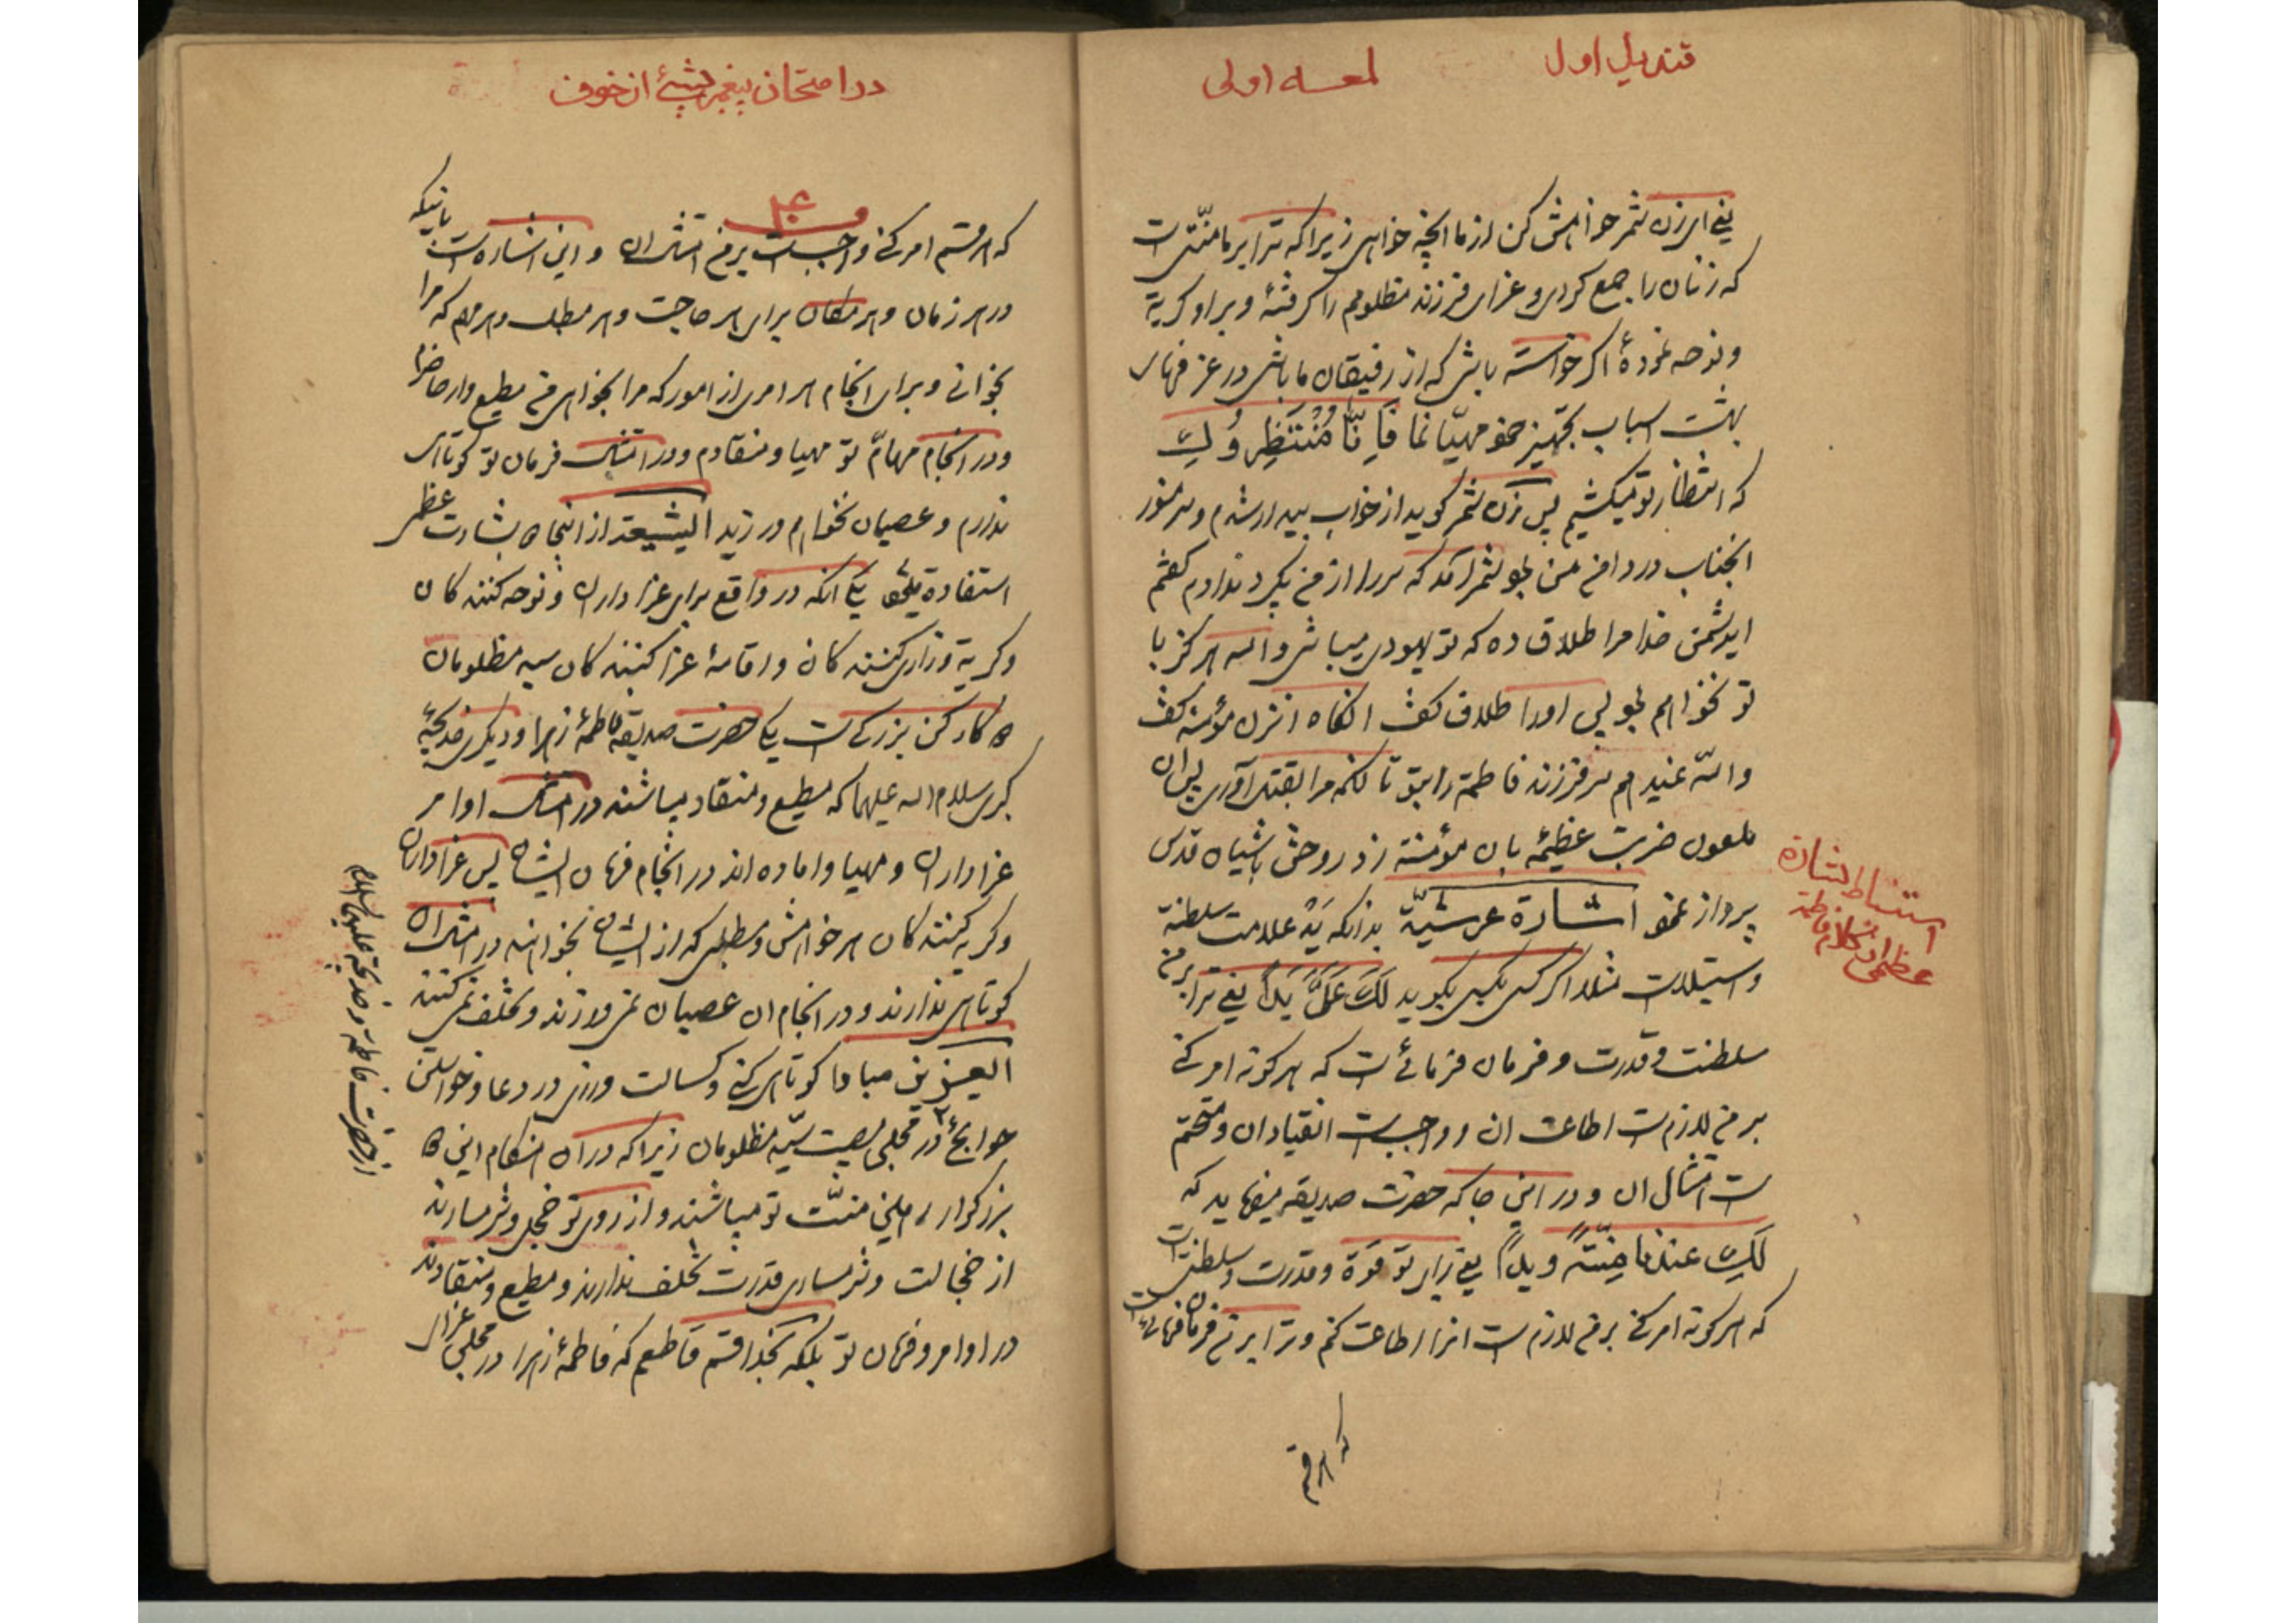 قندیل اول
لمعه اولی
یعنی ای زن شمر خواهش کن از ما انچه خواهی زیرا که ترا بر ما منّتی است
که زنان را جمع کردی و عزای فرزند مظلومم را گرفتهٔ و بر او گریه
و نوحه نمودهٔ اگر خواسته باشی که از رفیقان ما باشی در غرفهای
بهشت اسباب تجهیز خود مهیّا نما فَاِنّا مُنْتَظِرُوکِ
که انتظار تو میکشیم پس زن شمر گوید از خواب بیدار شدم و سر منور
انجناب در دامن من بود شمر آمد که سر را از من بگیرد ندادم گفتم
ایدشمن خدا مرا طلاق ده که تو یهودی میباشی والله هرگز با
تو نخواهم بود پس او را طلاق گفت انگاه انزن مؤمنه گفت
والله نمیدهم سر فرزند فاطمه را بتو تا انکه مرا بقتل آوری پس ان
ملعون ضربت عظیمه بان مؤمنه زد روحش باشیان قدس
پرواز نمود اشارة عرشیّة بدانکه یَدْ علامت سلطنة
و استیلاست مثلا اگر کسی بکسی بگوید لَکَ عَلَیَّ یَدٌ یعنی ترا بر من
سلطنت و قدرت و فرمان فرمائی است که هر گونه امر کنی
بر من لازم است اطاعت ان و واجبست انقیاد ان و متحتم
است امتثال ان و در این جا که حضرت صدیقه میفرماید که
لَکِ عندنا مِنّتهً و یداً یعنی برای تو قوة و قدرت و سلطنتی است
که هر گونه امر کنی بر من لازم است انرا اطاعت کنم و ترا بر من فرمان فرمائی است
که هر قسم
استنباط بشارة
عظمی از کلام فاطمة
در امتحان پیغمبر بشیئ از خوف
که هر قسم امر کنی واجبست بر من امتثال ان و این اشاره است باینکه
در هر زمان و هر مکان برای هر حاجت و هر مطلب و هر مهم که مرا
بخوانی و برای انجام هر امری از امور که مرا بخواهی من مطیع و حاضرم
و در انجام مهامّ تو مهیا و منقادم و در امتثال فرمان تو کوتاهی
ندارم و عصیان نخواهم ورزید ایشیعه از اینجا بشارت عظمی
استفاده میشود یکی انکه در واقع برای عزاداران و نوحه کنندکان
و گریه و زاری کنندکان و اقامهٔ عزا کنندکان سید مظلومان
کارکن بزرگی است یکی حضرت صدیقه فاطمهٔ زهرا و دیگری خدیجهٔ
کبری سلام الله علیهما که مطیع و منقاد میباشند در امتثال اوامر
عزاداران و مهیا و اماده اند در انجام فرمان ایشان پس عزاداران
و گریه کنندکان هر خواهش و مطلبی که از ایشان بخواهند در امتثال ان
کوتاهی ندارند و در انجام ان عصیان نمی ورزند و تخلف نمی کنند
ایعزیز من مبادا کوتاهی کنی و کسالت ورزی در دعا و خواستن
حوائج در مجلس مصیبت سیّد مظلومان زیرا که در ان هنگام این
بزرگوار رهین منّت تو میباشند و از روی تو خجل و شرمسارند
از خجالت و شرمساری قدرت تخلف ندارند و مطیع و منقادند
در اوامر و فرمان تو بلکه بخدا قسم قاطعم که فاطمهٔ زهرا در مجلس عزای
از حضرت فاطمه و خدیجه علیهما السلام